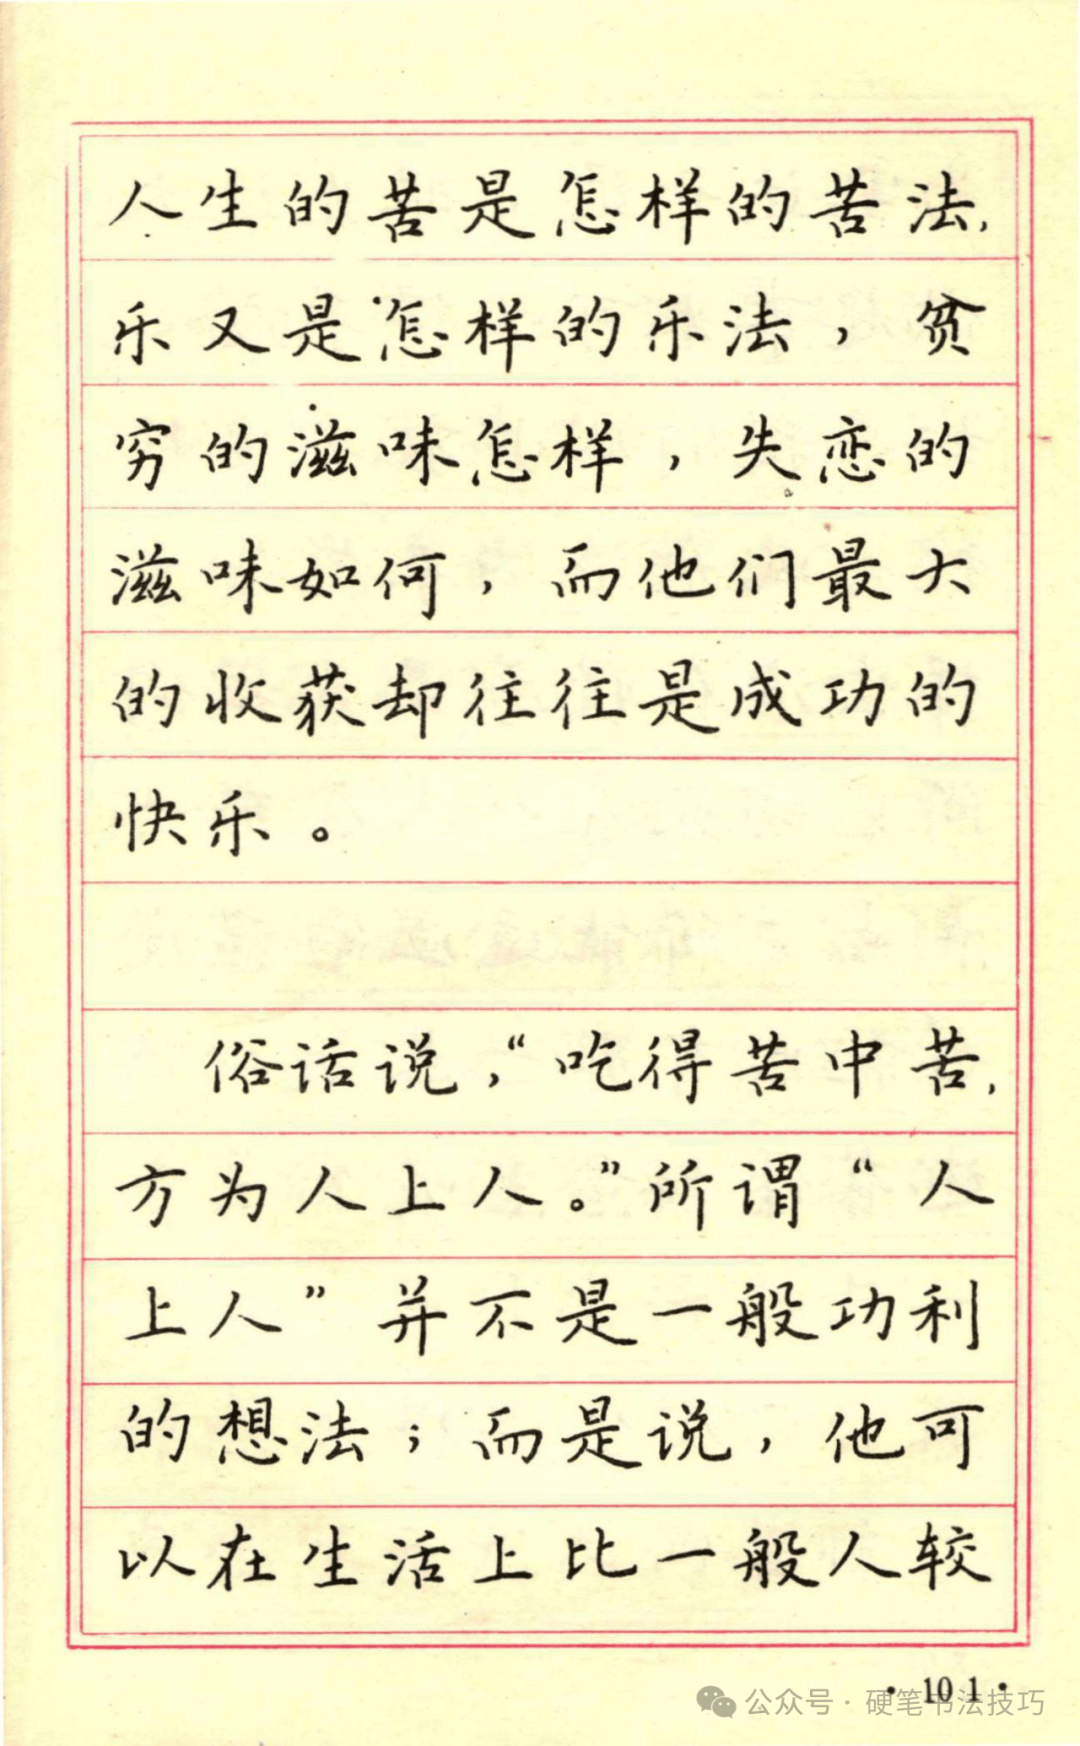 人生的苦是怎样的苦法，
乐又是怎样的乐法，贫
穷的滋味怎样，失恋的
滋味如何，而他们最大
的收获却往往是成功的
快乐。
俗话说，“吃得苦中苦，
方为人上人。”所谓“人
上人”并不是一般功利
的想法；而是说，他可
以在生活上比一般人较
·101·
公众号·硬笔书法技巧